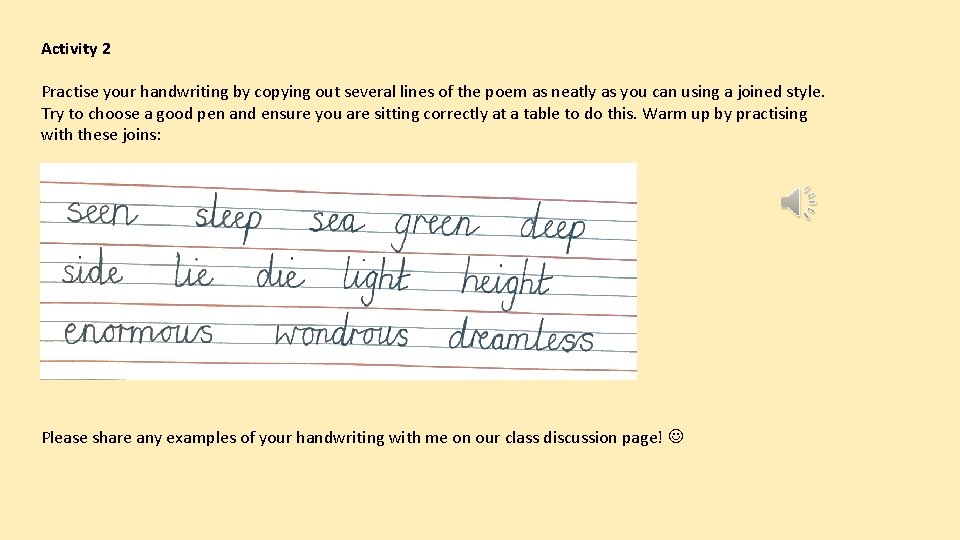 Activity 2
Practise your handwriting by copying out several lines of the poem as neatly as you can using a joined style.
Try to choose a good pen and ensure you are sitting correctly at a table to do this. Warm up by practising
with these joins:
seen sleep sea green deep
side lie die light height
enormous wondrous dreamless
Please share any examples of your handwriting with me on our class discussion page! ☺